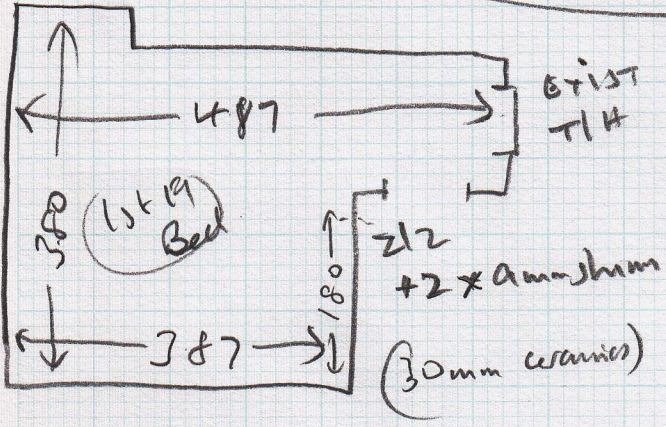 EXIST
T/H
487
380
1st Pl
Bed
180
Z12
+2 x 9mm shim
387
(30mm ceramics)